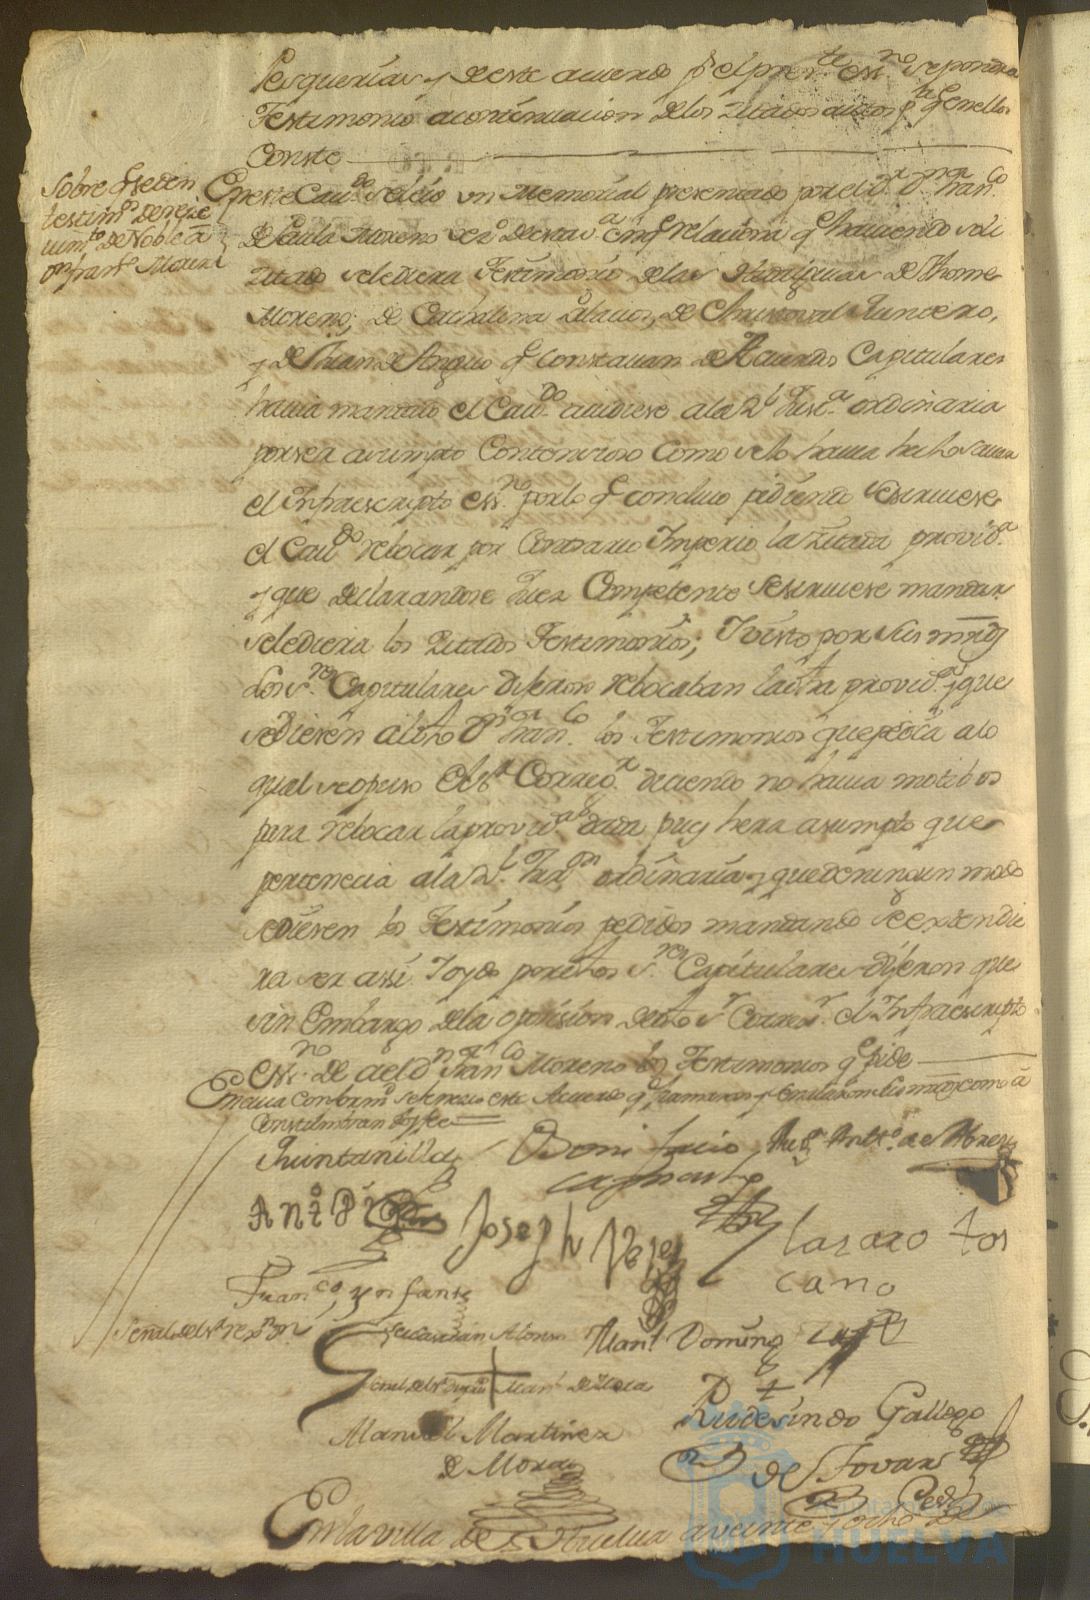 Pesquerias y de este acuerdo p.r el pres.te ess.no se pondra
Testimonio a continuacion de los zitados autos p.a q.e en ellos
Conste
Sobre q.e se den
testim.s de reci
uim.to de Noble a
D.n fran.co Moreno
En este Cau.do se leio un Memorial presentado por el D.r D.n Fran.co
de Paula Moreno vez.o de esta v.a en q.e relaciona q.e haviendo soli
zitado se le diera Testimonio de las Hidalguias de Thome
Moreno, de Cathalina Palacios, de Christoval Quintero,
y de Juan de Angulo q.e constauan de Acuerdos Capitulares
hauia mandado el Cau.do acudiese a la R.l Just.a ordinaria
por ser asumpto Contencioso como se lo hauia hecho sauer
el Infraescripto ess.no por lo q.e concluio pidiendo se siruiese
el Cau.do rebocar por Contrario Imperio la zitada provid.a
y que declarandose Juez Competente se siruiese mandar
se le diera los zitados Testimonios; Y visto por sus mrds
los s.res Capitulares dijeron rebocaban la d.ha provid.a y que
se diesen al d.ho D.n Fran.co los Testimonios que pedia a lo
qual se opuso el s.r Correg.r diciendo no hauia motibos
para rebocar la provid.a dada pues hera asumpto que
pertenecia a la R.l Jur.on ordinaria y que de ningun modo
se diesen los Testimonios pedidos mandando se extendie
ra ser assi. Y oydo por d.hos s.res Capitulares dijeron que
sin embargo de la oposision de d.ho s.r Correg.r el Infraescripto
ess.no de a el D.n Fran.co Moreno los Testimonios q.e pide
En cuia conform.d se fenecio este Acuerdo q.e firmaron y señalaron sus mrds como a
Constumbran doy fee
Quintanilla
Bonifacio
Ant.o de Mora
Ant.o
Joseph
Lazaro Tos
cano
Fran.co ynfante
Señal del s.r rex.or
Sebastian Alonso
Man.l Doming
señal del s.r Man.l de
Manuel Martinez
de Mora
Rudesindo Gallego
de Tovar
En la villa de Huelva a veinte y ocho de
Ayuntamiento de
HUELVA